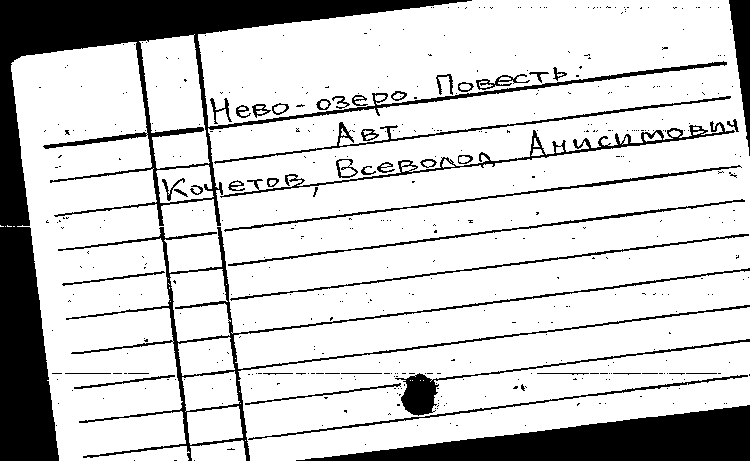 Нево-озеро. Повесть.
Авт
Кочетов, Всеволод Анисимович